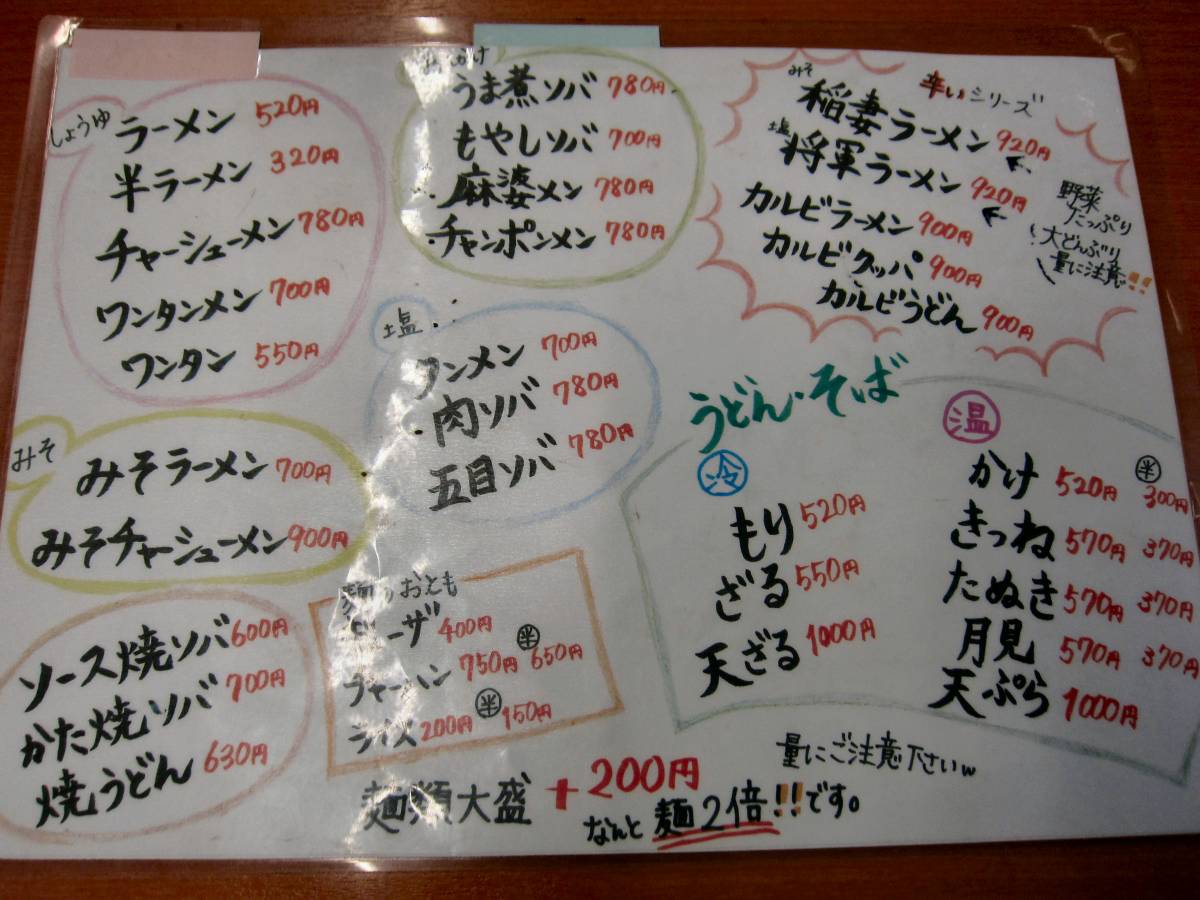 しょうゆ
ラーメン 520円
半ラーメン 320円
チャーシューメン 780円
ワンタンメン 700円
ワンタン 550円
うま煮ソバ 780円
もやしソバ 700円
麻婆メン 780円
チャンポンメン 780円
辛いシリーズ
みそ 稲妻ラーメン 920円
塩 将軍ラーメン 920円
カルビラーメン 900円
カルビクッパ 900円
カルビうどん 900円
野菜
たっぷり
大どんぶり
量に注意!!
塩
タンメン 700円
肉ソバ 780円
五目ソバ 780円
みそ
みそラーメン 700円
みそチャーシューメン 900円
うどん・そば
冷
もり 520円
ざる 550円
天ざる 1000円
温
かけ 520円 半 300円
きつね 570円 370円
たぬき 570円 370円
月見 570円 370円
天ぷら 1000円
ソース焼ソバ 600円
かた焼ソバ 700円
焼うどん 630円
麺のおとも
ギョーザ 400円
チャーハン 750円 半 650円
ライス 200円 半 150円
量にご注意下さいw
麺類大盛 +200円
なんと麺2倍!!です。